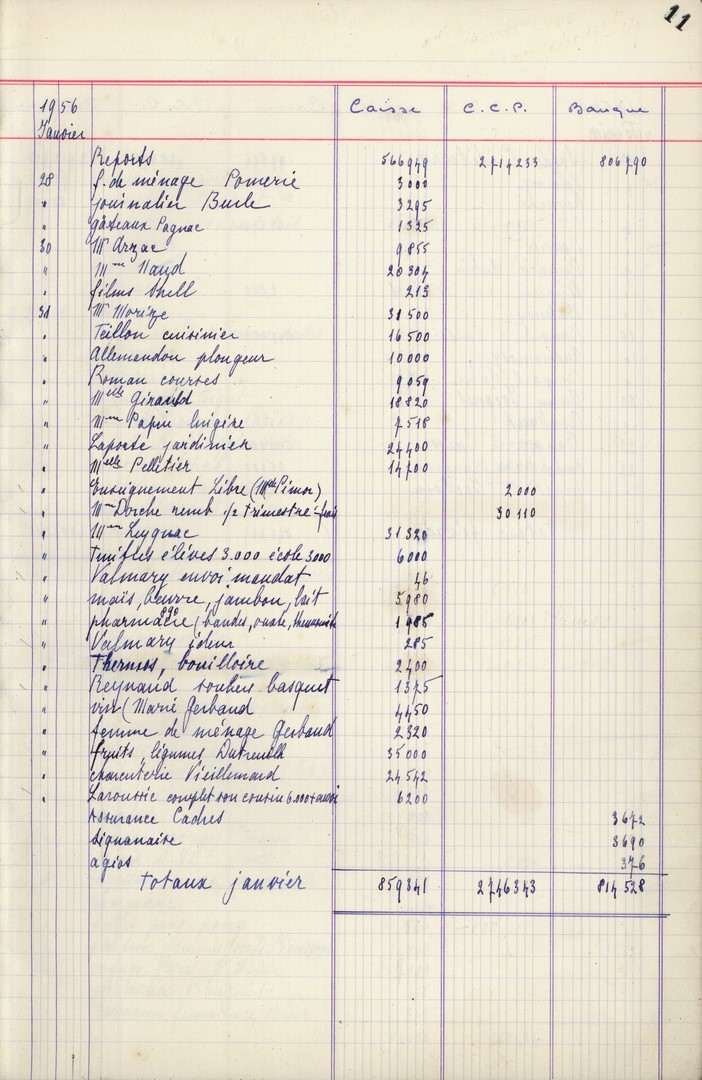 11
1956 Caisse C.C.P. Banque
Janvier
Reports 566949 2714233 806790
28 f. de ménage Pomerie 3000
" journalier Burle 3295
" gâteaux Pagnac 1325
30 Mr Arzac 9855
" Mme Naud 20304
" films Shell 213
31 Mr Morize 31500
" Teillon cuisinier 16500
" Allemandou plongeur 10000
" Roman courses 9059
" Melle Girauld 18820
" Mme Papin lingère 7518
" Laporte jardinier 24400
" Melle Pelletier 14700
" Enseignement Libre (Melle Pimor) 2000
" Mme Dorche remb 1/2 trimestre 30110
" Mme Leygnac 31320
" élèves 3.000 école 3000 6000
" Valmary envoi mandat 46
" maïs, beurre, jambon, lait 5980
" pharmacie (bandes, ouate, 1985
" Valmary idem 285
" Thermos, bouilloire 2400
" Reynaud souliers basquet 1375
" vin (Marie Gerbaud 4450
" femme de ménage Gerbaud 2320
" fruits, légumes Dutreuilh 35000
" charcuterie Vieillemard 24542
" Larousse complet son cousin 6.000 + 6200
Assurance Cadres 3672
3690
agios 376
totaux janvier 859341 2746343 814528